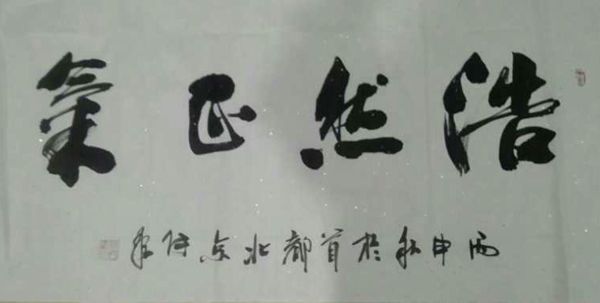 浩然正氣
丙申秋於首都北京